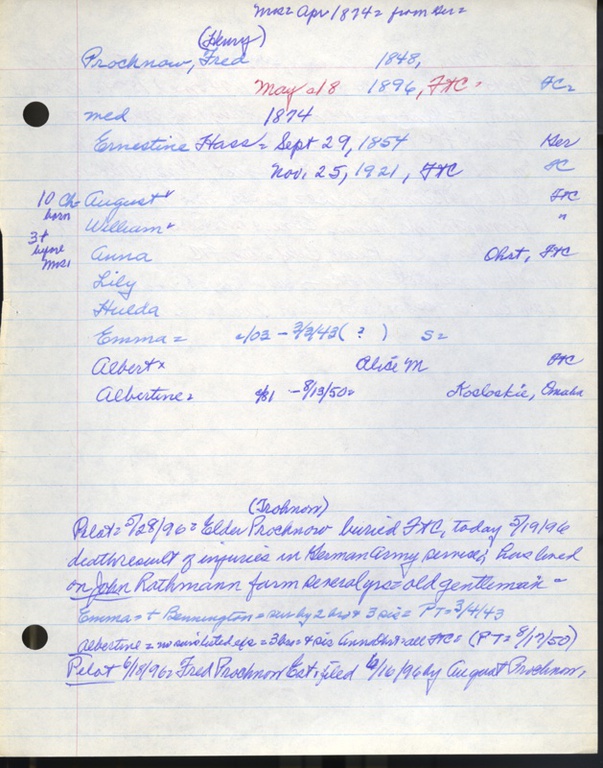 Mrs= Apr 1874= from Ger=
(Henry)
Prochnow, Fred 1848,
May 18 1896, FtC= FC=
med 1874
Ernestine Hass= Sept 29, 1854 Ger
Nov. 25, 1921, FtC FC
10 Ch August FtC
born William "
3+ Anna Ohst, FtC
Lily
Hulda
Emma= =/03 - 3/3/43( ? ) S=
Albert x Alice M FtC
Albertine= 81 - 8/13/50= Kosloskie, Omaha
(Trohnow)
Pilot= 5/28/96= Elder Prochnow buried FtC, today 5/19/96
death result of injuries in German Army service; has lived
on John Rathmann farm several yrs= old gentleman =
Emma= + Bennington= sur by 2 bro + 3 sis= PT= 3/4/43
Albertine= no sur listed = 3 bro= + sis Ann Ohst= all FtC= (PT= 8/17/50)
Pilot 6/18/96= Fred Prochnow Est; filed 6/16/96 by August Prochnow,